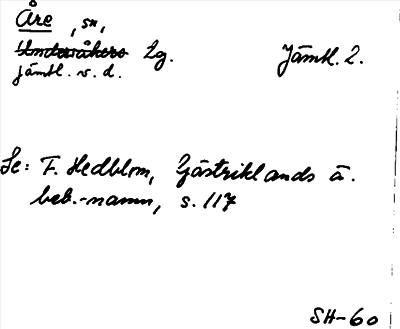 Åre, sn,
Undersåkers Lg. Jämtl. 2.
jämtl. v. d.
Se: F. Hedblom, Gästriklands ä.
beb.-namn, s. 117
SH-60